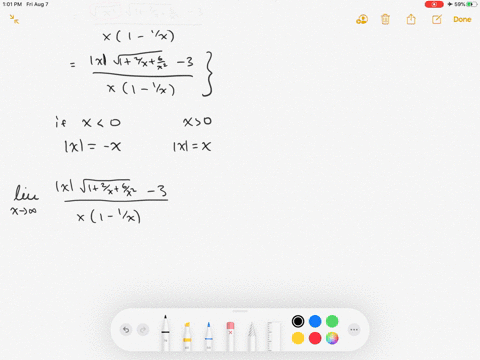 1:01 PM Fri Aug 7
59%
Done
x ( 1 - 1/x )
= |x| √(1 + 2/x + 6/x²) - 3 }
x ( 1 - 1/x )
if x < 0 x > 0
|x| = -x |x| = x
lim x→∞ |x| √(1 + 2/x + 6/x²) - 3
x ( 1 - 1/x )